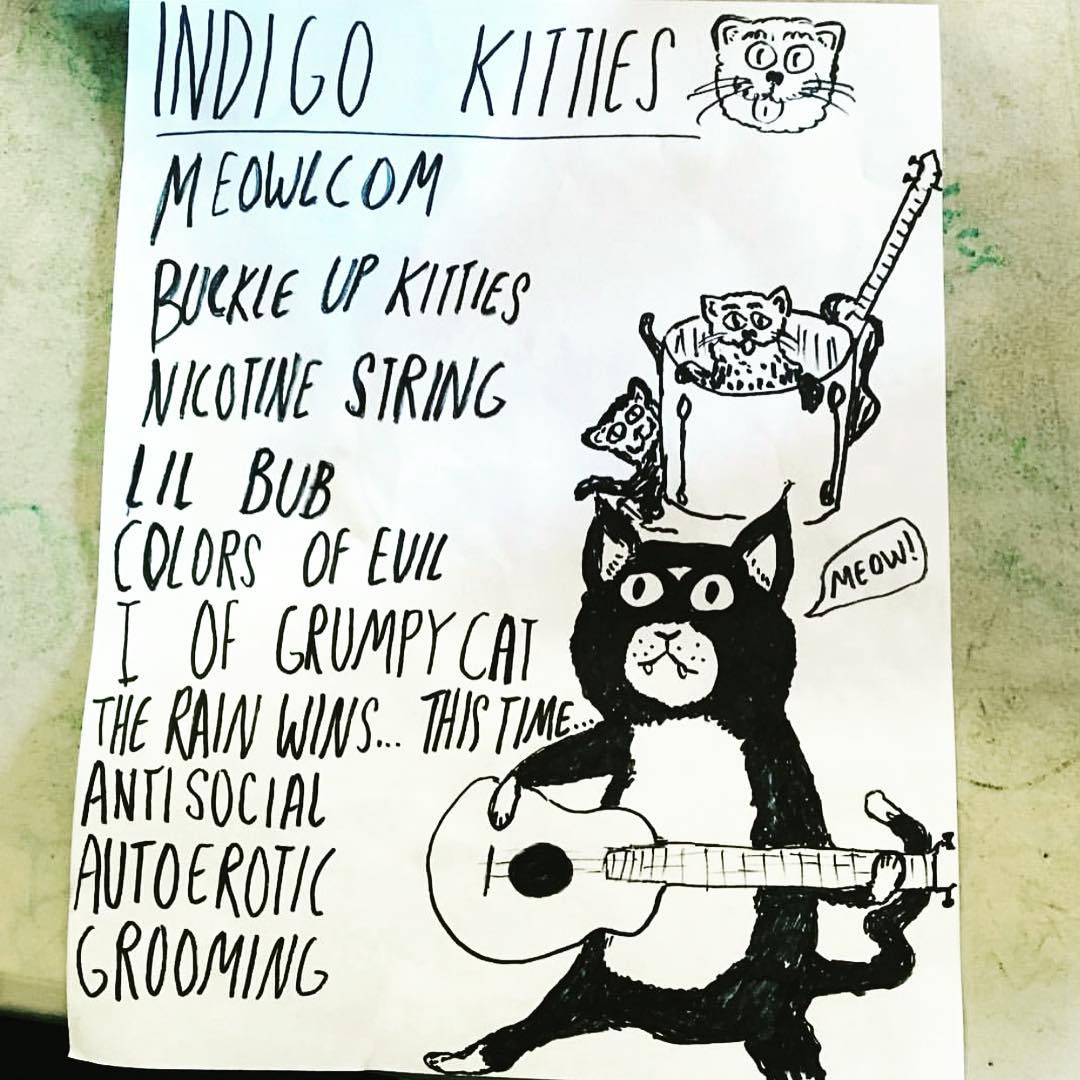 INDIGO KITTIES
MEOWLCOM
BUCKLE UP KITTIES
NICOTINE STRING
LIL BUB
COLORS OF EVIL
I OF GRUMPY CAT
THE RAIN WINS... THIS TIME...
ANTISOCIAL
AUTOEROTIC
GROOMING
MEOW!